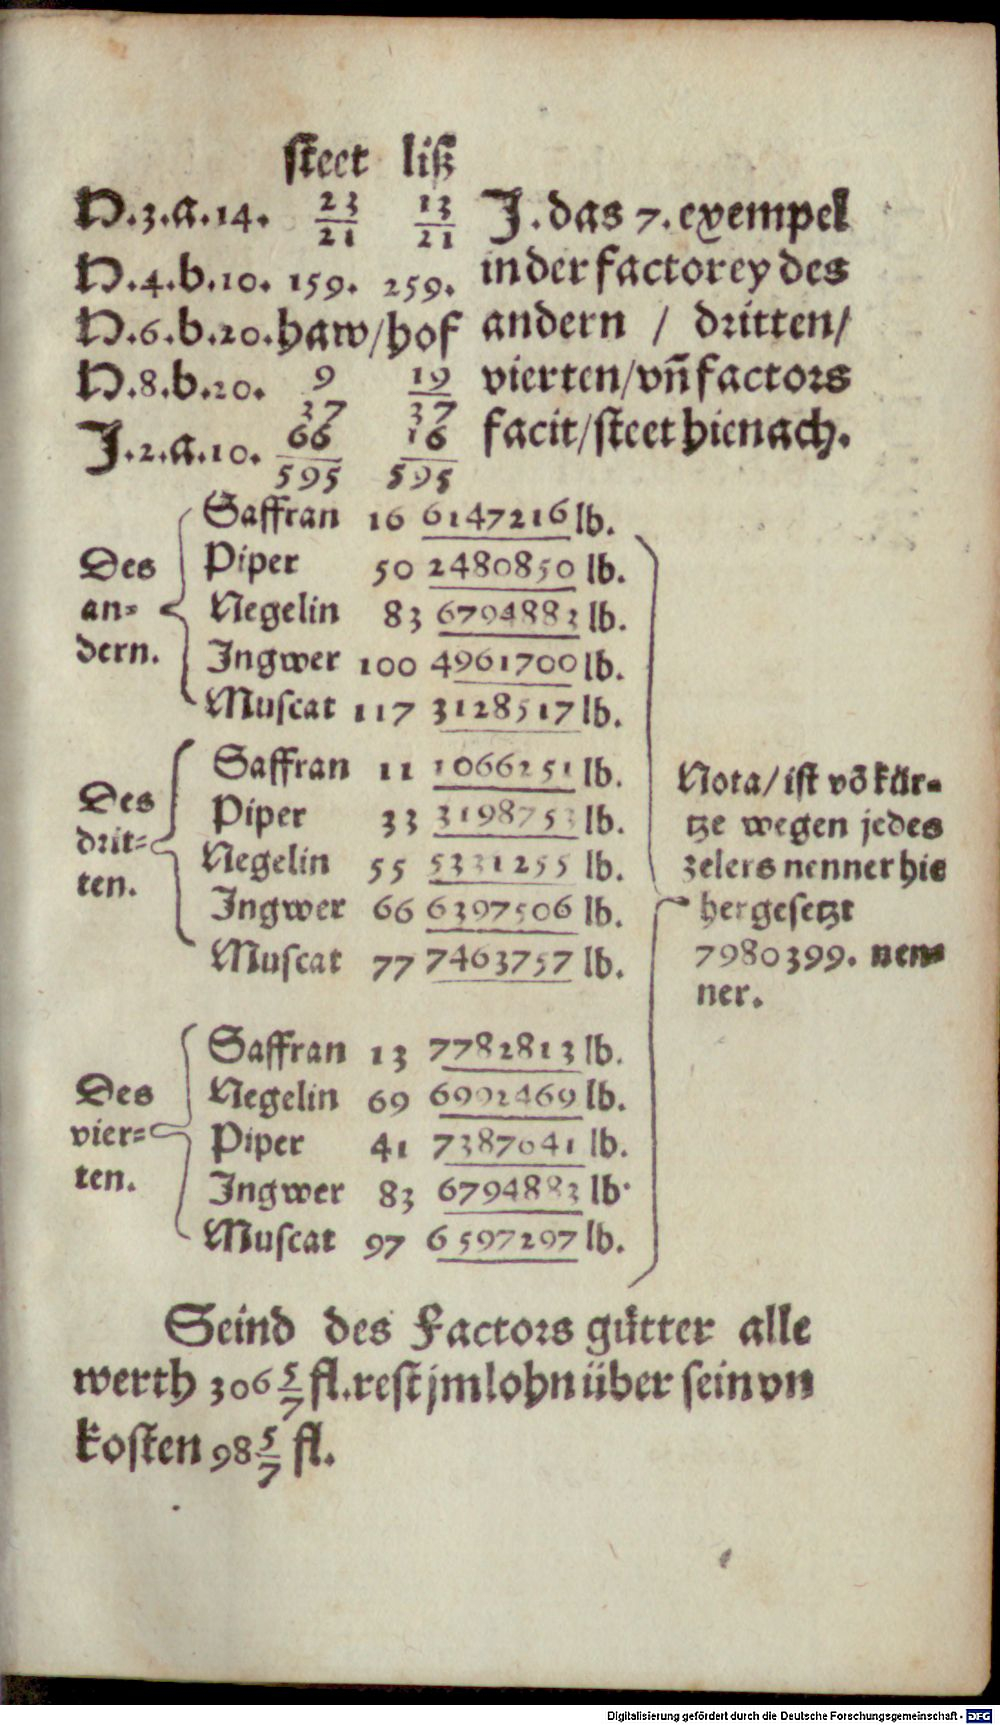 steet liß
N.3.a.14. 23/21 13/21
N.4.b.10. 159. 259.
N.6.b.20. haw/hof
N.8.b.20. 9/37 19/37
J.2.a.10. 66/595 16/595
J. das 7. exempel
in der factorey des
andern / dritten/
vierten/vñ factors
facit/steet hienach.
Des
an=
dern.
Saffran 16 6147216 lb.
Piper 50 2480850 lb.
Negelin 83 6794883 lb.
Ingwer 100 4961700 lb.
Muscat 117 3128517 lb.
Des
drit=
ten.
Saffran 11 1066251 lb.
Piper 33 3198753 lb.
Negelin 55 5331255 lb.
Ingwer 66 6397506 lb.
Muscat 77 7463757 lb.
Nota/ist vō kür=
tze wegen jedes
zelers nenner hie
her gesetzt
7980399. nen=
ner.
Des
vier=
ten.
Saffran 13 7782813 lb.
Negelin 69 6992469 lb.
Piper 41 7387641 lb.
Ingwer 83 6794883 lb.
Muscat 97 6597297 lb.
Seind des Factors gütter alle
werth 306 5/7 fl. rest jm lohn über sein vn
kosten 98 5/7 fl.
Digitalisierung gefördert durch die Deutsche Forschungsgemeinschaft - DFG